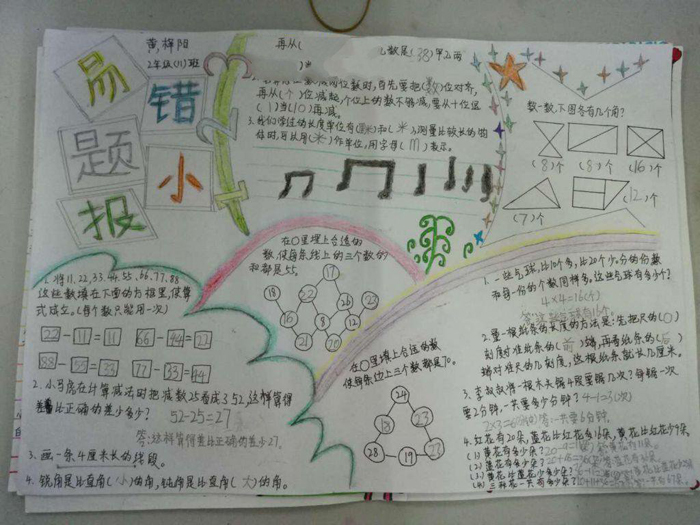 黄梓阳
2年级(11)班
易错题小报
再从(
数是(38)
)中
位数时,首先要把(数)位对齐,
再从(个)位减起,个位上的数不够减,要从十位退
(1)当(10)再减。
3、我们学过的长度单位有(厘米)和(米),测量比较长的物
体时,可以用(米)作单位,用字母(m)表示。
数一数,下图各有几个角?
(8)个 (8)个 (16)个
(7)个 (12)个
在○里填上合适的
数,使每条线上的三个数的
和都是55。
17
18 22 12 27
28 8 26
16 21 20
1、将11、22、33、44、55、66、77、88
这些数填在下面的方框里,使算
式成立。(每个数只能用一次)
22-11=11 66-44=22
88-55=33 77-33=44
2、小马虎在计算减法时把减数25看成了52,这样算得
比正确的差少多少? 52-25=27
答:这样算得差比正确的差少27。
3、画一条4厘米长的线段。
4、锐角是比直角(小)的角,钝角是比直角(大)的角。
在○里填上合适的数
使每条边上三个数都是70。
24
18 23
28 19 23
1、一些气球,比10个多,比20个少。分的份数
和每一份的个数同样多。这些气球有多少个?
4×4=16(个)
2、量一根纸条的长度的方法是:先把尺的(0)
刻度对准纸条的(前)端,再看纸条的(后)
端对准尺的几刻度,这根纸条就长几厘米。
3、李叔叔将一根木头锯4段要锯几次?每锯一次
要2分钟,一共要多少分钟? 4-1=3(次)
2×3=6(分) 答:一共要6分钟。
4、红花有20朵,蓝花比红花多16朵,黄花比红花少9朵。
(1)黄花有多少朵?
(2)蓝花有多少朵?